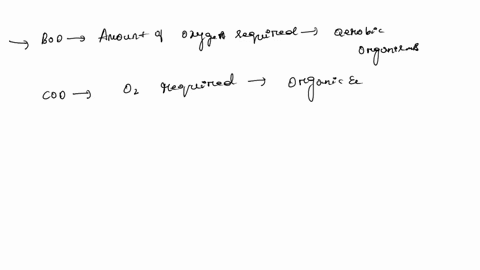 → BOD → Amount of oxygen required → aerobic
organisms
COD → O2 required → Organic &